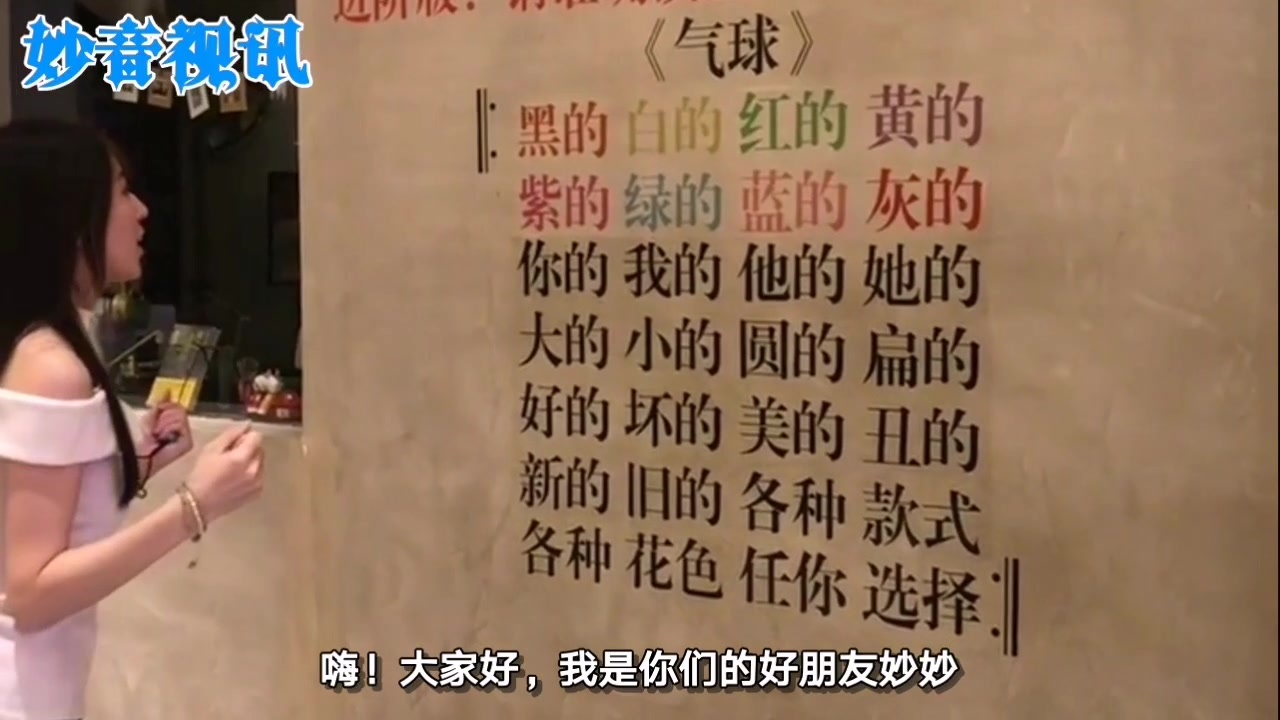 妙音视讯
进阶版：请在
《气球》
黑的 白的 红的 黄的
紫的 绿的 蓝的 灰的
你的 我的 他的 她的
大的 小的 圆的 扁的
好的 坏的 美的 丑的
新的 旧的 各种 款式
各种 花色 任你 选择
嗨！大家好，我是你们的好朋友妙妙